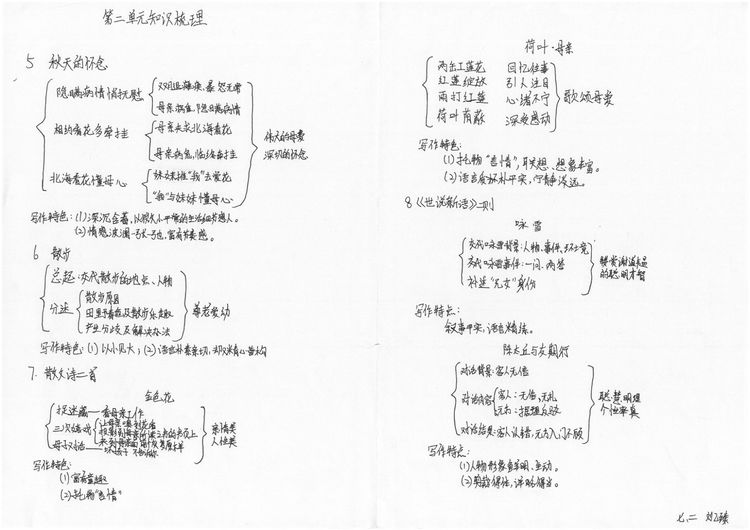 第二单元知识梳理
5 秋天的怀念
隐瞒病情悄抚慰
双腿瘫痪,暴怒无常
母亲病重,隐瞒病情
相约看花多牵挂
母亲央求北海看花
母亲病危,临终牵挂
北海看花懂母心
妹妹推"我"去赏花
"我"与妹妹懂母心
伟大的母爱
深切的怀念
写作特色:(1)深沉含蓄,以很大小平常的生活细节感人。
(2)情感波澜一张一弛,富有节奏感。
6 散步
总起:交代散步的地点、人物
分述
散步原因
田野春趣及散步乐趣
产生分歧及解决办法
尊老爱幼
写作特色:(1)以小见大;(2)语言朴素亲切,却又精心营构
7. 散文诗二首
金色花
捉迷藏——看母亲工作
三次嬉戏
母子对话——
亲情美
人性美
写作特色:
(1)富有童趣
(2)托物"言情"
荷叶·母亲
两缸红莲花 回忆往事
红莲绽放 引人注目
雨打红莲 心绪不宁
荷叶荫蔽 深受感动
歌颂母爱
写作特色:
(1)托物"言情",联想、想象丰富。
(2)语言质朴平实,宁静深远。
8《世说新语》二则
咏雪
交代咏雪背景:人物、事件、环境
交代咏雪事件:一问、两答
补述"兄女"身份
赞赏谢道韫
的聪明才智
写作特点:
叙事平实,语言精练。
陈太丘与友期行
对话背景:客人无信
对话内容
客人:无信,无礼
元方:据理反驳
对话结果:客人认错,元方入门不顾
聪慧明理
个性率真
写作特点:
(1)人物形象鲜明、生动。
(2)剪裁得体,详略得当。
七.二